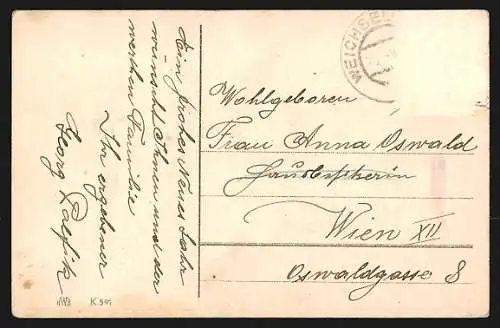 Ein frohes Neues Jahr
wünscht Ihnen und der
werthen Familie
Ihr ergebener
Georg
WEICHSEL
Wohlgeboren
Frau Anna Oswald
Hausbesitzerin
Wien XII
Oswaldgasse 8
K 941